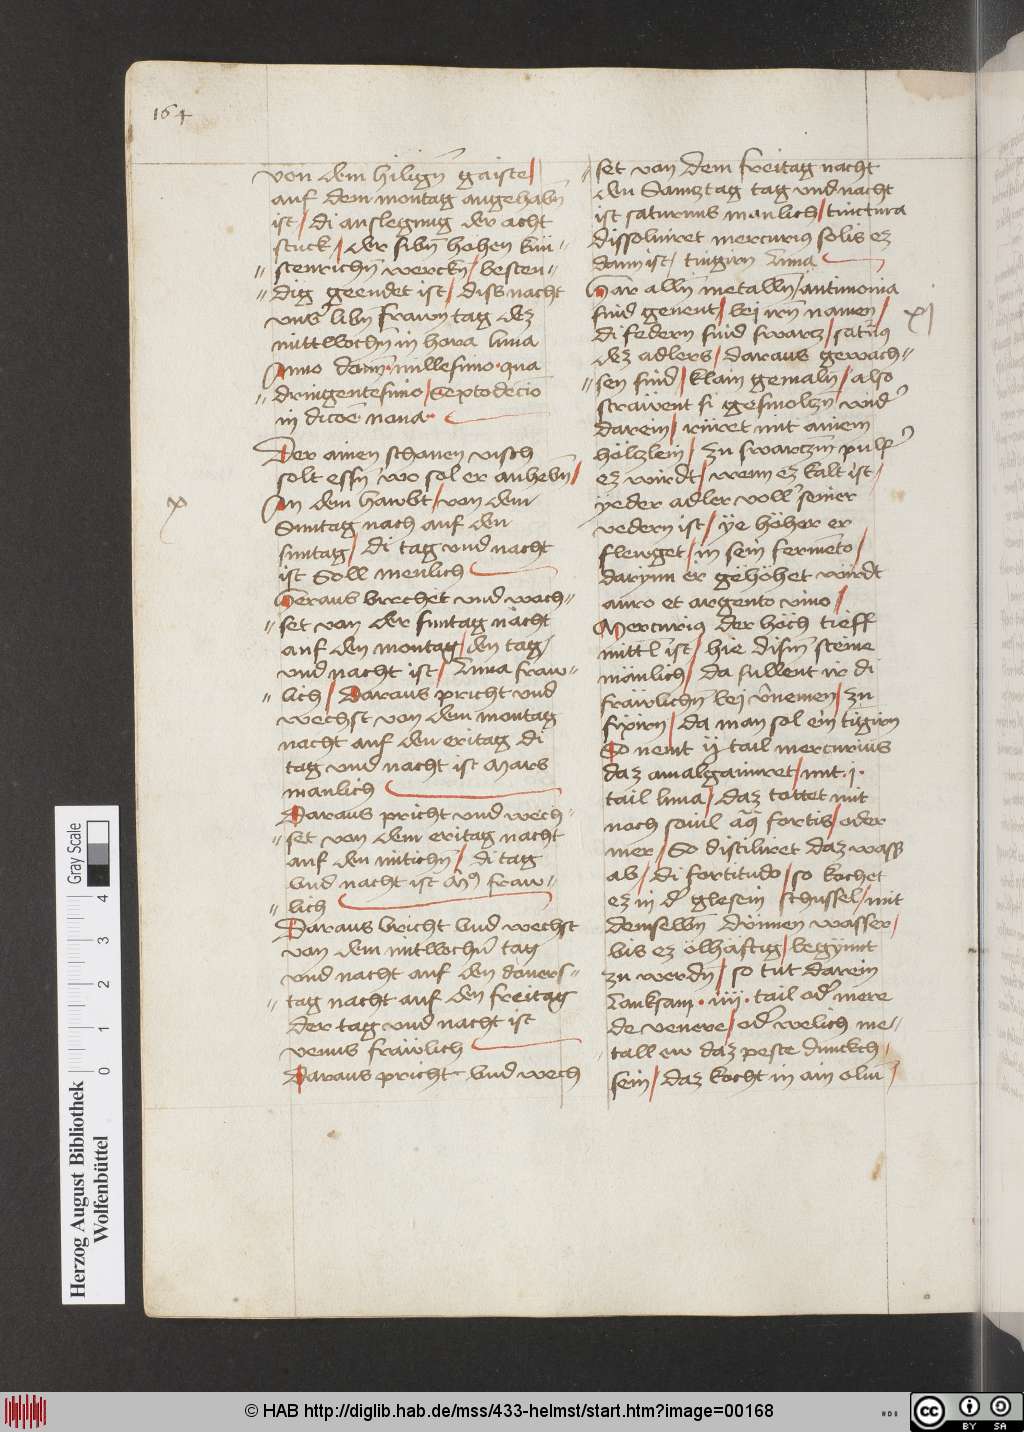 164
von dem hiligñ gaiste /
auf dem montag angehabñ
ist / di auslegung der acht
stuck / der sibñ höhen kün〃
〃stenrichñ werckñ / besten〃
〃dig geendet ist / diss nacht
vnsˀ libñ frawn tag dez
mittwochñ in hora luna
Anno dom̃ · millesimo · qua
〃dringentesimo / Septodecio
in dicõe nona ·
Der ainen schonen visch
solt essñ wo sol er anhebñ /
x
An dem hawbt / von dem
Sunntag nach auf den
suntag / di tag vnd nacht
ist Soll menlich
Heraus brechet vnd wech〃
〃set von der suntag nacht
auf den montag / den tag /
vnd nacht ist / Luna fraw〃
〃lich / Daraus pricht vnd
wechst von dem montag
nacht auf den eritag di
tag vnd nacht ist Mars
manlich
Daraus pricht vnd wech〃
〃set von dem eritag nacht
auf den mitichñ / di tag
vnd nacht ist fraw〃
〃lich
Daraus bricht vnd wechst
von dem mitwochñ tag
vnd nacht auf den doners〃
〃tag nacht auf den freitag
der tag vnd nacht ist
venus fräwlich
Daraus pricht vnd wech
〃set von dem freitag nacht
den Samztag tag vnd nacht
ist saturnus manlich / tinctura
dissoluiret mercurius solis ez
dann ist / tingirn Luna
xj
Gar allñ metallñ / antimonia
sind genent / bei irñ namen /
di federn sind swarcz / satñus
dez adlers / daraus gewach〃
〃sen sind / klain gemalñ / also
sträwent si gesmolczñ vndˀ
darein / rüret mit ainem
hölzlein / zu swarczm pulfˀ
ez wirdt / wenn ez kalt ist /
yeder adler voll seiner
vedern ist / ye höher er
flewget / in sein fermẽto /
darynn er gehöhet wirdt
auro et argento vino /
Mercurius der höch tieff
mittl ist / hie dism̃ steine
mänlich / da sullent ir di
fräwlichñ bei v̂nemen / zu
fixirn / da man sol ein tigirn
So nemt ij tail mercurius
daz amalgamiret / mit · j ·
tail luna / daz töttet mit
noch souil aq̃ fortis / oder
mer / So distiliret daz wass
ab / di fortitudo / so kochet
ez in dˀ glesein schussel / mit
demselbñ dönnen wasser /
bis ez ölhäftig / begynnt
zu werdñ / so tut darein
Lanksam · iiij · tail odˀ mere
de venere / odˀ welich me〃
〃tall ew daz peste dunckch
sein / daz kocht in ain oluĩ /
Herzog August Bibliothek
Wolfenbüttel
0 1 2 3 4
Gray Scale
© HAB http://diglib.hab.de/mss/433-helmst/start.htm?image=00168
cc BY SA